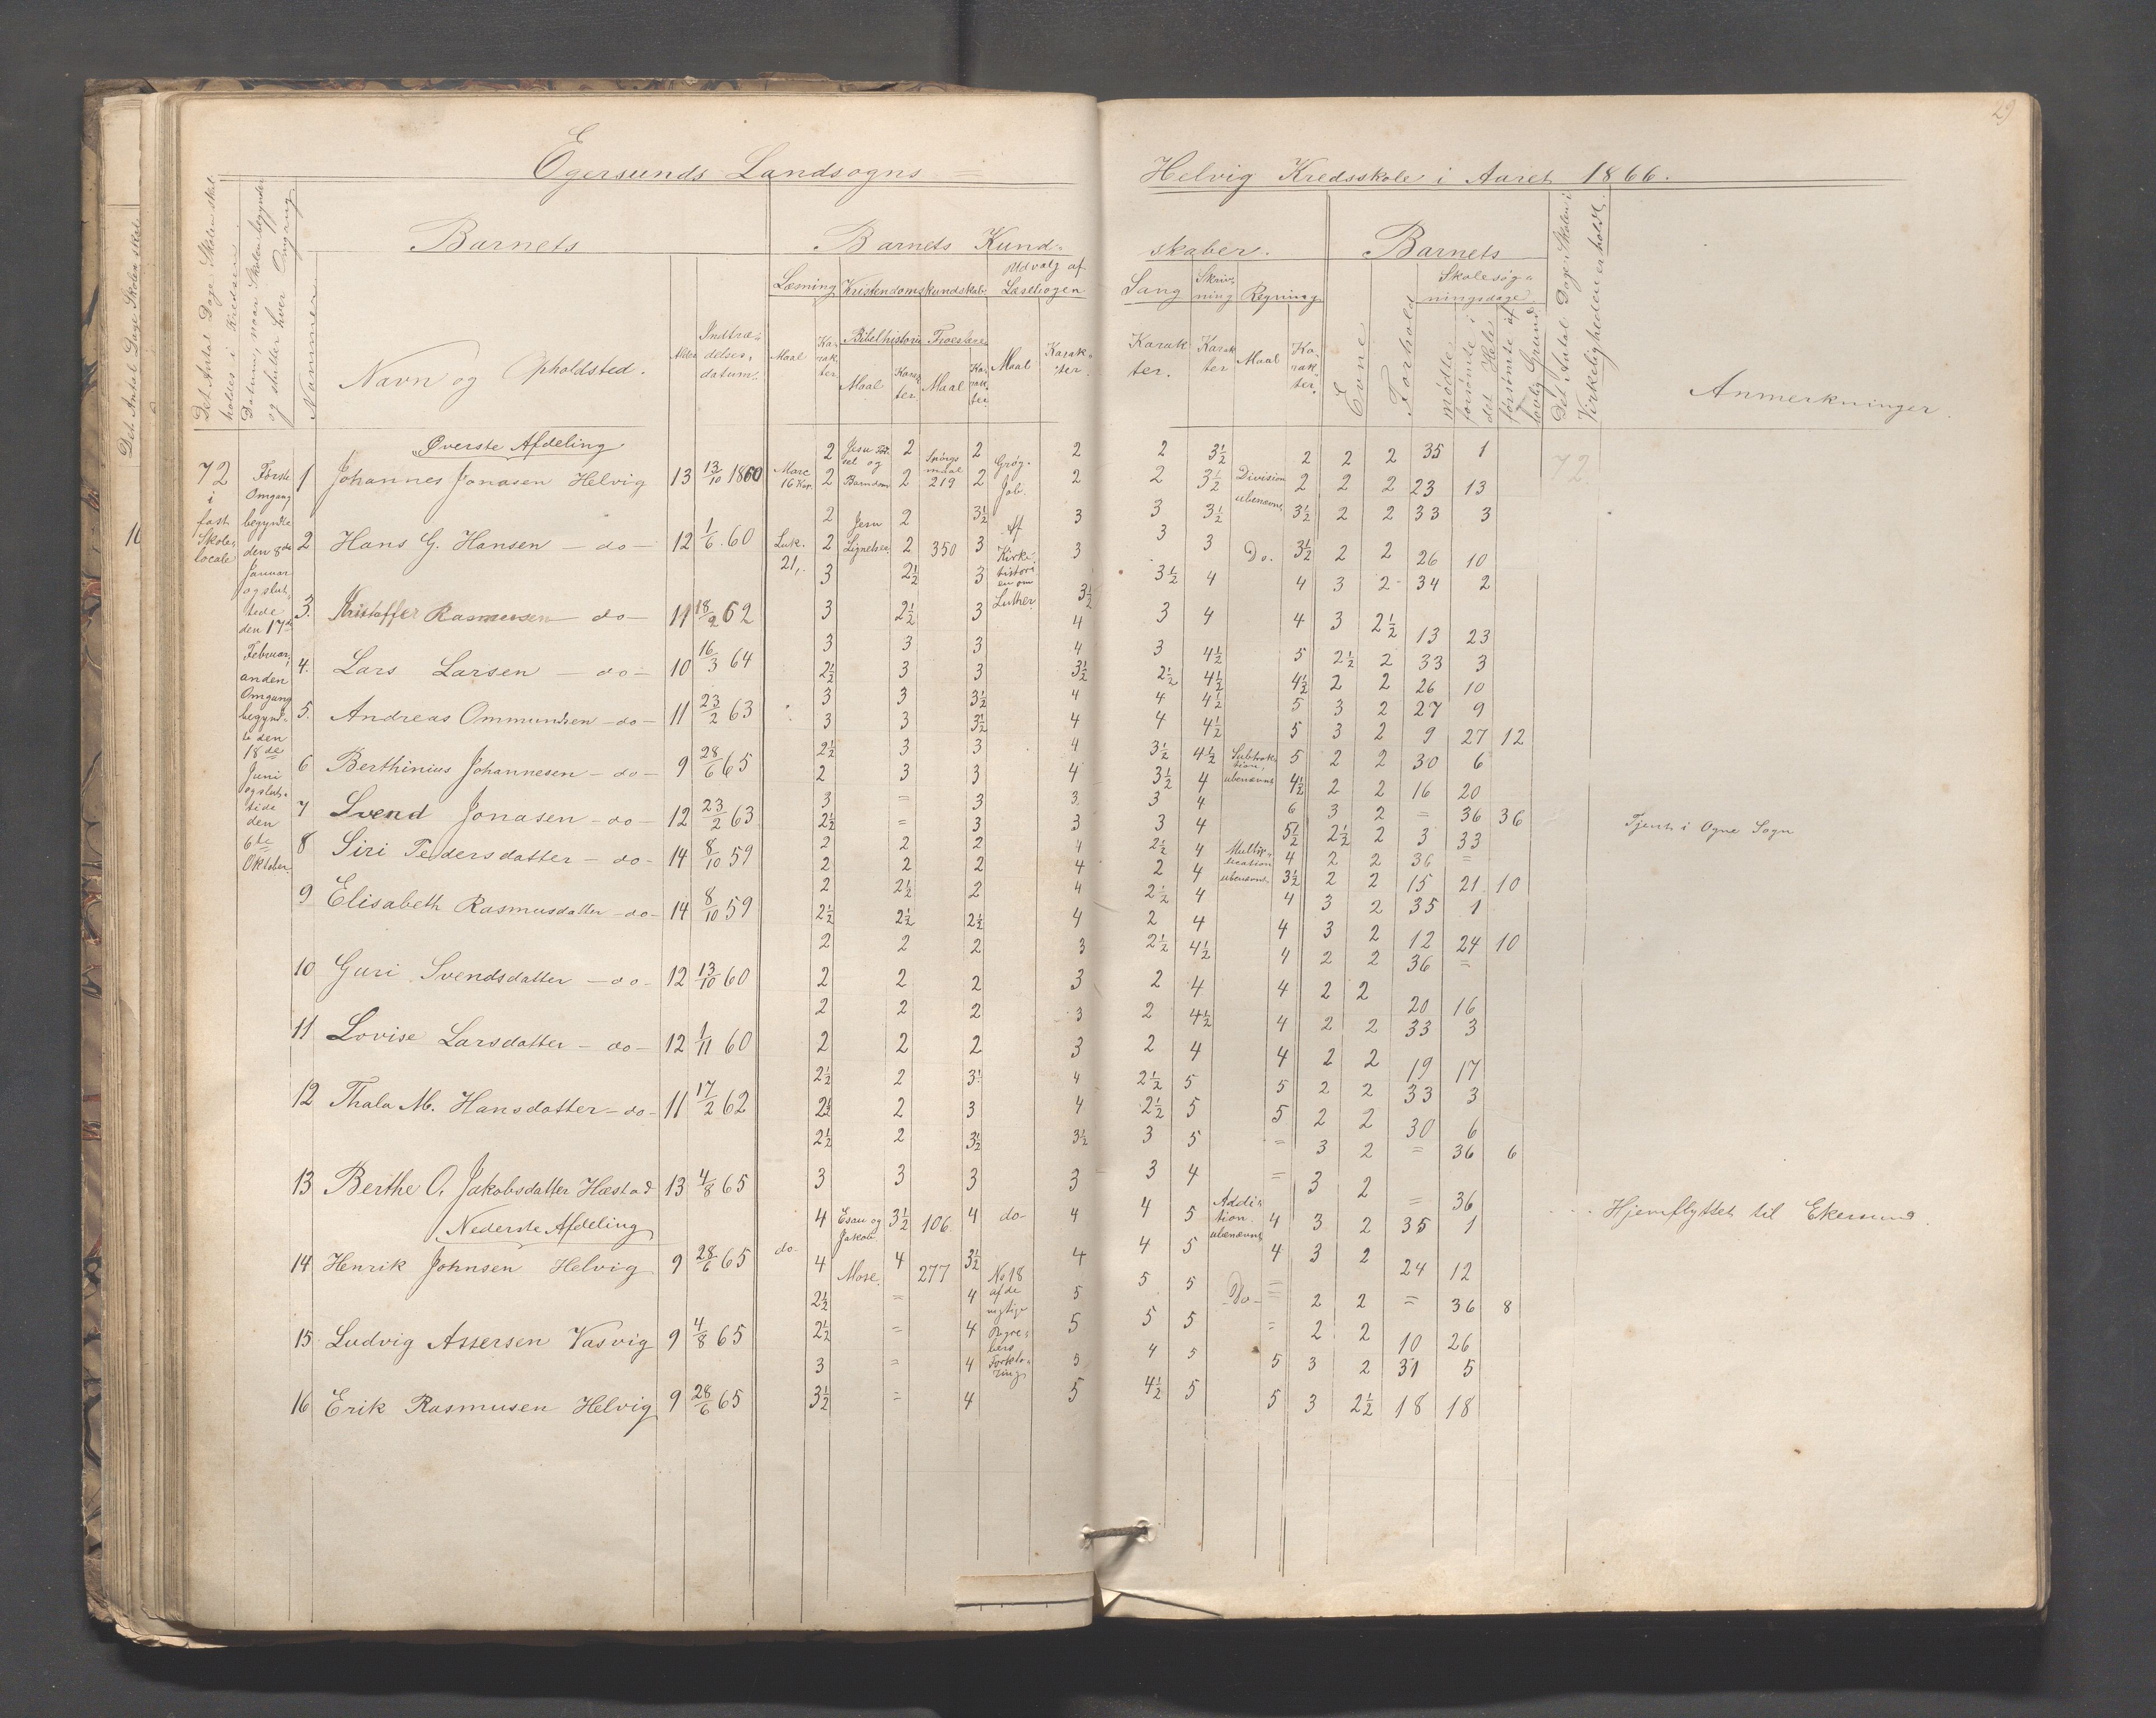 29
Egersunds Landsogns = Helvig Kredsskole i Aaret 1866.
Det Antal Dage Skolen skal holdes i Kredsen.
Datum, naar Skolen begynder og slutter hver Omgang
Nummer
Barnets
Navn og Opholdsted.
Alder
Indtrædelsesdatum.
Barnets Kundskaber.
Læsning
Maal
Karakter
Kristendomskundskab
Bibelhistorie
Maal
Karakter
Troeslære
Maal
Karakter
Udvalg af Læsebogen
Maal
Karakter
Sang
Karakter.
Skrivning
Karakter
Regning
Maal
Karakter.
Barnets
Evne
Forhold
Skolesøgningsdage
mødte
forsømte i det Hele
forsømte af lovlig Grund
Det Antal Dage Skolen i Virkeligheden er holdt
Anmerkninger.
72 i fast Skolelocale
Første Omgang begyndte den 8de Januar og sluttede den 17de Februar, anden Omgang begyndte den 18de Juni og sluttede den 6te Oktober
Øverste Afdeling
2 Jesu Fødsel og 2 2 2 2 3½ 2 2 2 35 1
1 Johannes Jonasen Helvig 13 13/10 1860 Marc 16 Kap. 2 Barndom 2 Spørgsmaal 219 2 Grøg. Job. 2 2 3½ Division ubenævnt 2 2 2 23 13 72
2 2 3½ 3 3 3½ 3½ 2 2 33 3
2 Hans G. Hansen - do - 12 1/6 60 Luk. 21,. 2 Jesu Lignelser 2 350 3 Af Kirkehistorien om Luther 3 3 3 Do. 3½ 2 2 26 10
3 2½ 3 3½ 3½ 4 4 3 2 34 2
3. Kristoffer Rasmusen - do - 11 18/2 62 3 2½ 3 4 3 4 4 3 2½ 13 23
3 3 3 4 3 4½ 5 2½ 2 33 3
4. Lars Larsen - do - 10 16/3 64 2½ 3 3 3½ 2½ 4½ 4½ 2 2 26 10
3 3 3½ 4 4 4½ 5 3 2 27 9
5. Andreas Ommundsen - do - 11 23/2 63 3 3 3½ 4 4 4½ 5 3 2 9 27 12
2½ 3 3 4 3½ 4½ Subtraktion, ubenævnt 5 2 2 30 6
6 Berthinius Johannesen - do - 9 28/6 65 2 3 3 4 3½ 4 4½ 2 2 16 20
3 = 3 3 3 4 6 3 2 = 36 36 Tjent i Ogne Sogn
7 Svend Jonasen - do - 12 23/2 63 2½ = 3 3 3 4 5½ 2½ 2 3 33
2 2 2 4 2½ 4 Multiplication ubenævnt 4 2 2 36 =
8 Siri Pedersdatter - do - 14 8/10 59 2 2 2 4 2 4 3½ 2 2 15 21 10
2 2½ 2 4 2½ 4 4 3 2 35 1
9 Elisabeth Rasmusdatter - do - 14 8/10 59 2½ 2½ 2½ 4 2 4 4 3 2 12 24 10
2 2 2 3 2½ 4½ 4 2 2 36 =
10 Guri Svendsdatter - do - 12 13/10 60 2 2 2 3 2 4 4 2 2 20 16
2 2 2 3 2 4½ 4 2 2 33 3
11 Lovise Larsdatter - do - 12 1/11 60 2 2 2 3 2 4 4 2 2 19 17
2½ 2 3½ 4 2½ 5 5 2 2 33 3
12 Thala M. Hansdatter - do - 11 17/2 62 2½ 2 3 4 2½ 5 5 2 2 30 6
2½ 2 3½ 3½ 3 5 = 3 2 = 36 6
13 Berthe O. Jakobsdatter Hæstad 13 4/8 65 3 3 3 3 3 4 = 3 2 = 36 Hjemflyttet til Ekersund.
Nederste Afdeling
4 Esau og Jakob 3½ 106 4 do- 4 4 5 Addition ubenævnt 4 3 2 35 1
14 Henrik Johnsen Helvig 9 28/6 65 do- 4 Mose. 4 277 3½ No 18 4 4 5 4 3 2 24 12
2½ = 4 5 5 5 - Do - = 2 2 = 36 8
15 Ludvig Assersen Vasvig 9 4/8 65 2½ = 4 5 5 5 = 2 2 10 26
3 = 4 5 4 5 5 3 2 31 5
16 Erik Rasmusen Helvig 9 28/6 65 3½ = 4 5 4½ 5 5 3 2½ 18 18